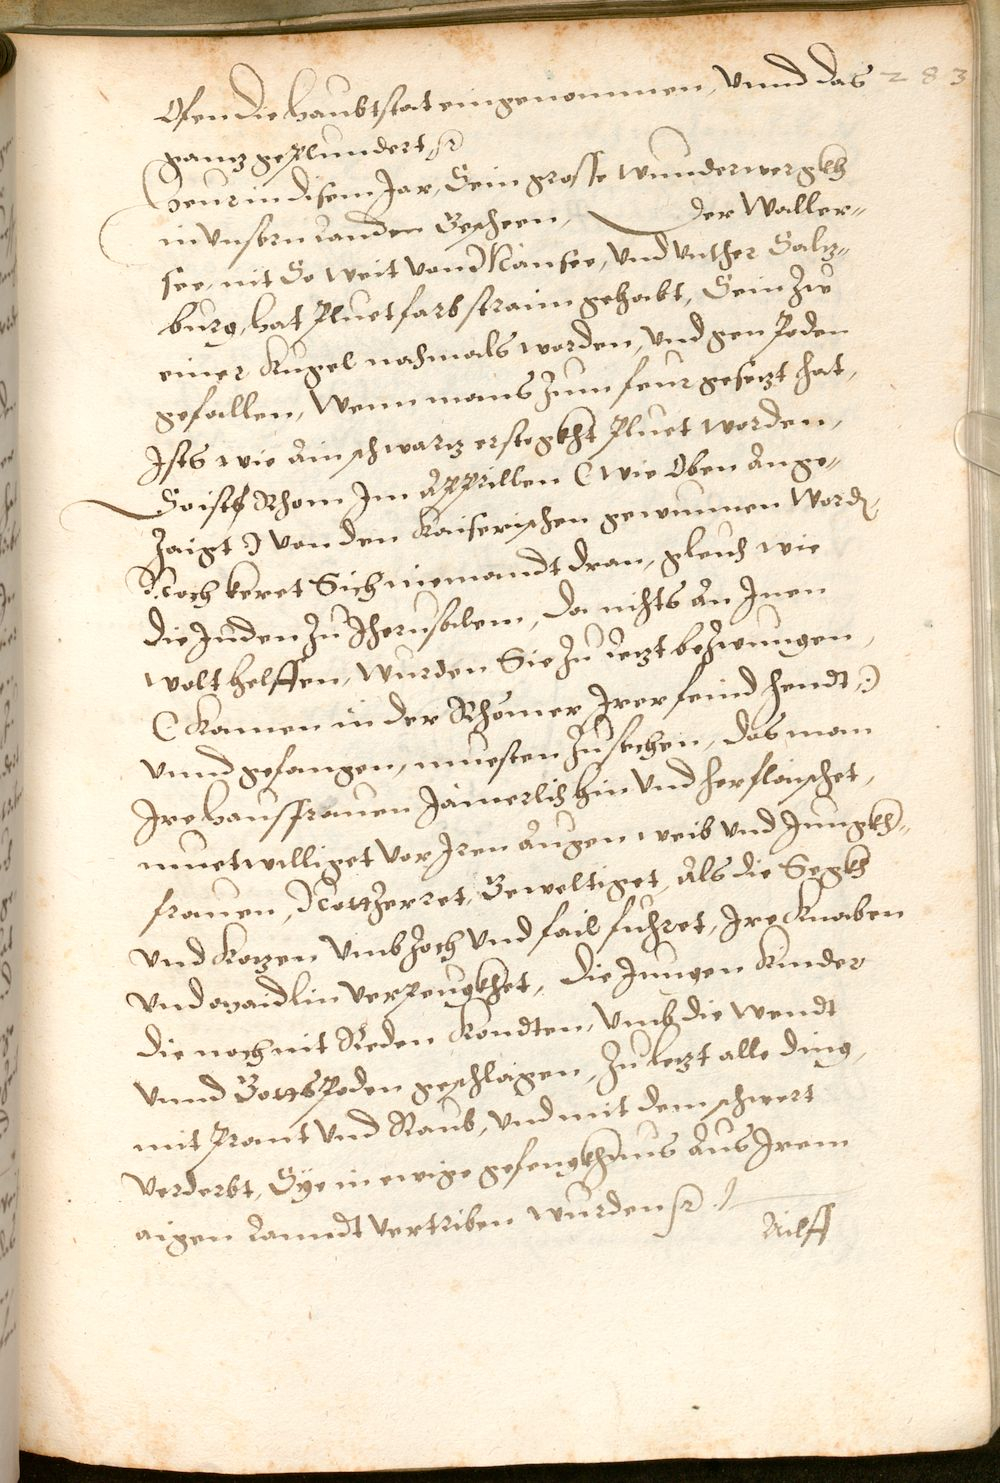 283
Ofen die haubtstat eingenommen, Vnnd das
gantz geplundert etc
heur in disem Jar, Sein grosse wunderwergkh
in Vnsern Landen Geschehen, der Waller-
see, nit So weit von Mansee, Vnd vnther Saltz-
burg, hat Pluetfarb straim gehabt, Sein Zu
einer Kugel nachmals worden, Vnd gen Poden
gefallen, Wenn mans Zum feur gesetzt hat,
Ists wie Ain schwartz erstogkht Pluet worden,
So ist Rhom Im Apprillen (Wie Oben Ange-
zaigt:) von den Kaiserischen gewunnen Wordn,
Noch keret Sich niemandt dran, gleich wie
die Juden Zu Jherusalem, Da nichts An Inen
wolt helffen, Wurden Sie Zu Letzt bezwungen,
(Kamen in der Rhömer Irer feind hendt:)
Vnnd gefangen, muesten Zusechen, das man
Ire hausfrauen Jämerlich hin Vnd her flaischet,
muetwilliget Vor Iren Augen weib Vnd Jungkh-
frauen, Nottzerret, Geweltiget, Als die Segkh
Vnd Kotzen Vmbzoch Vnd fail fuhret, Ire Knaben
Vnd maidlin Verpeugkhet, die Jungen Kinder
die noch nit Reden Kondten, Vmb die Wendt
Vnnd Gotts Poden geschlagen, Zu letzt alle ding,
mit Prant Vnd Raub, Vnd mit dem schwert
Verderbt, Sye in ewige gefengkhnus Aus Irem
aigen Lanndt Vertriben wurden etc.
Ailff